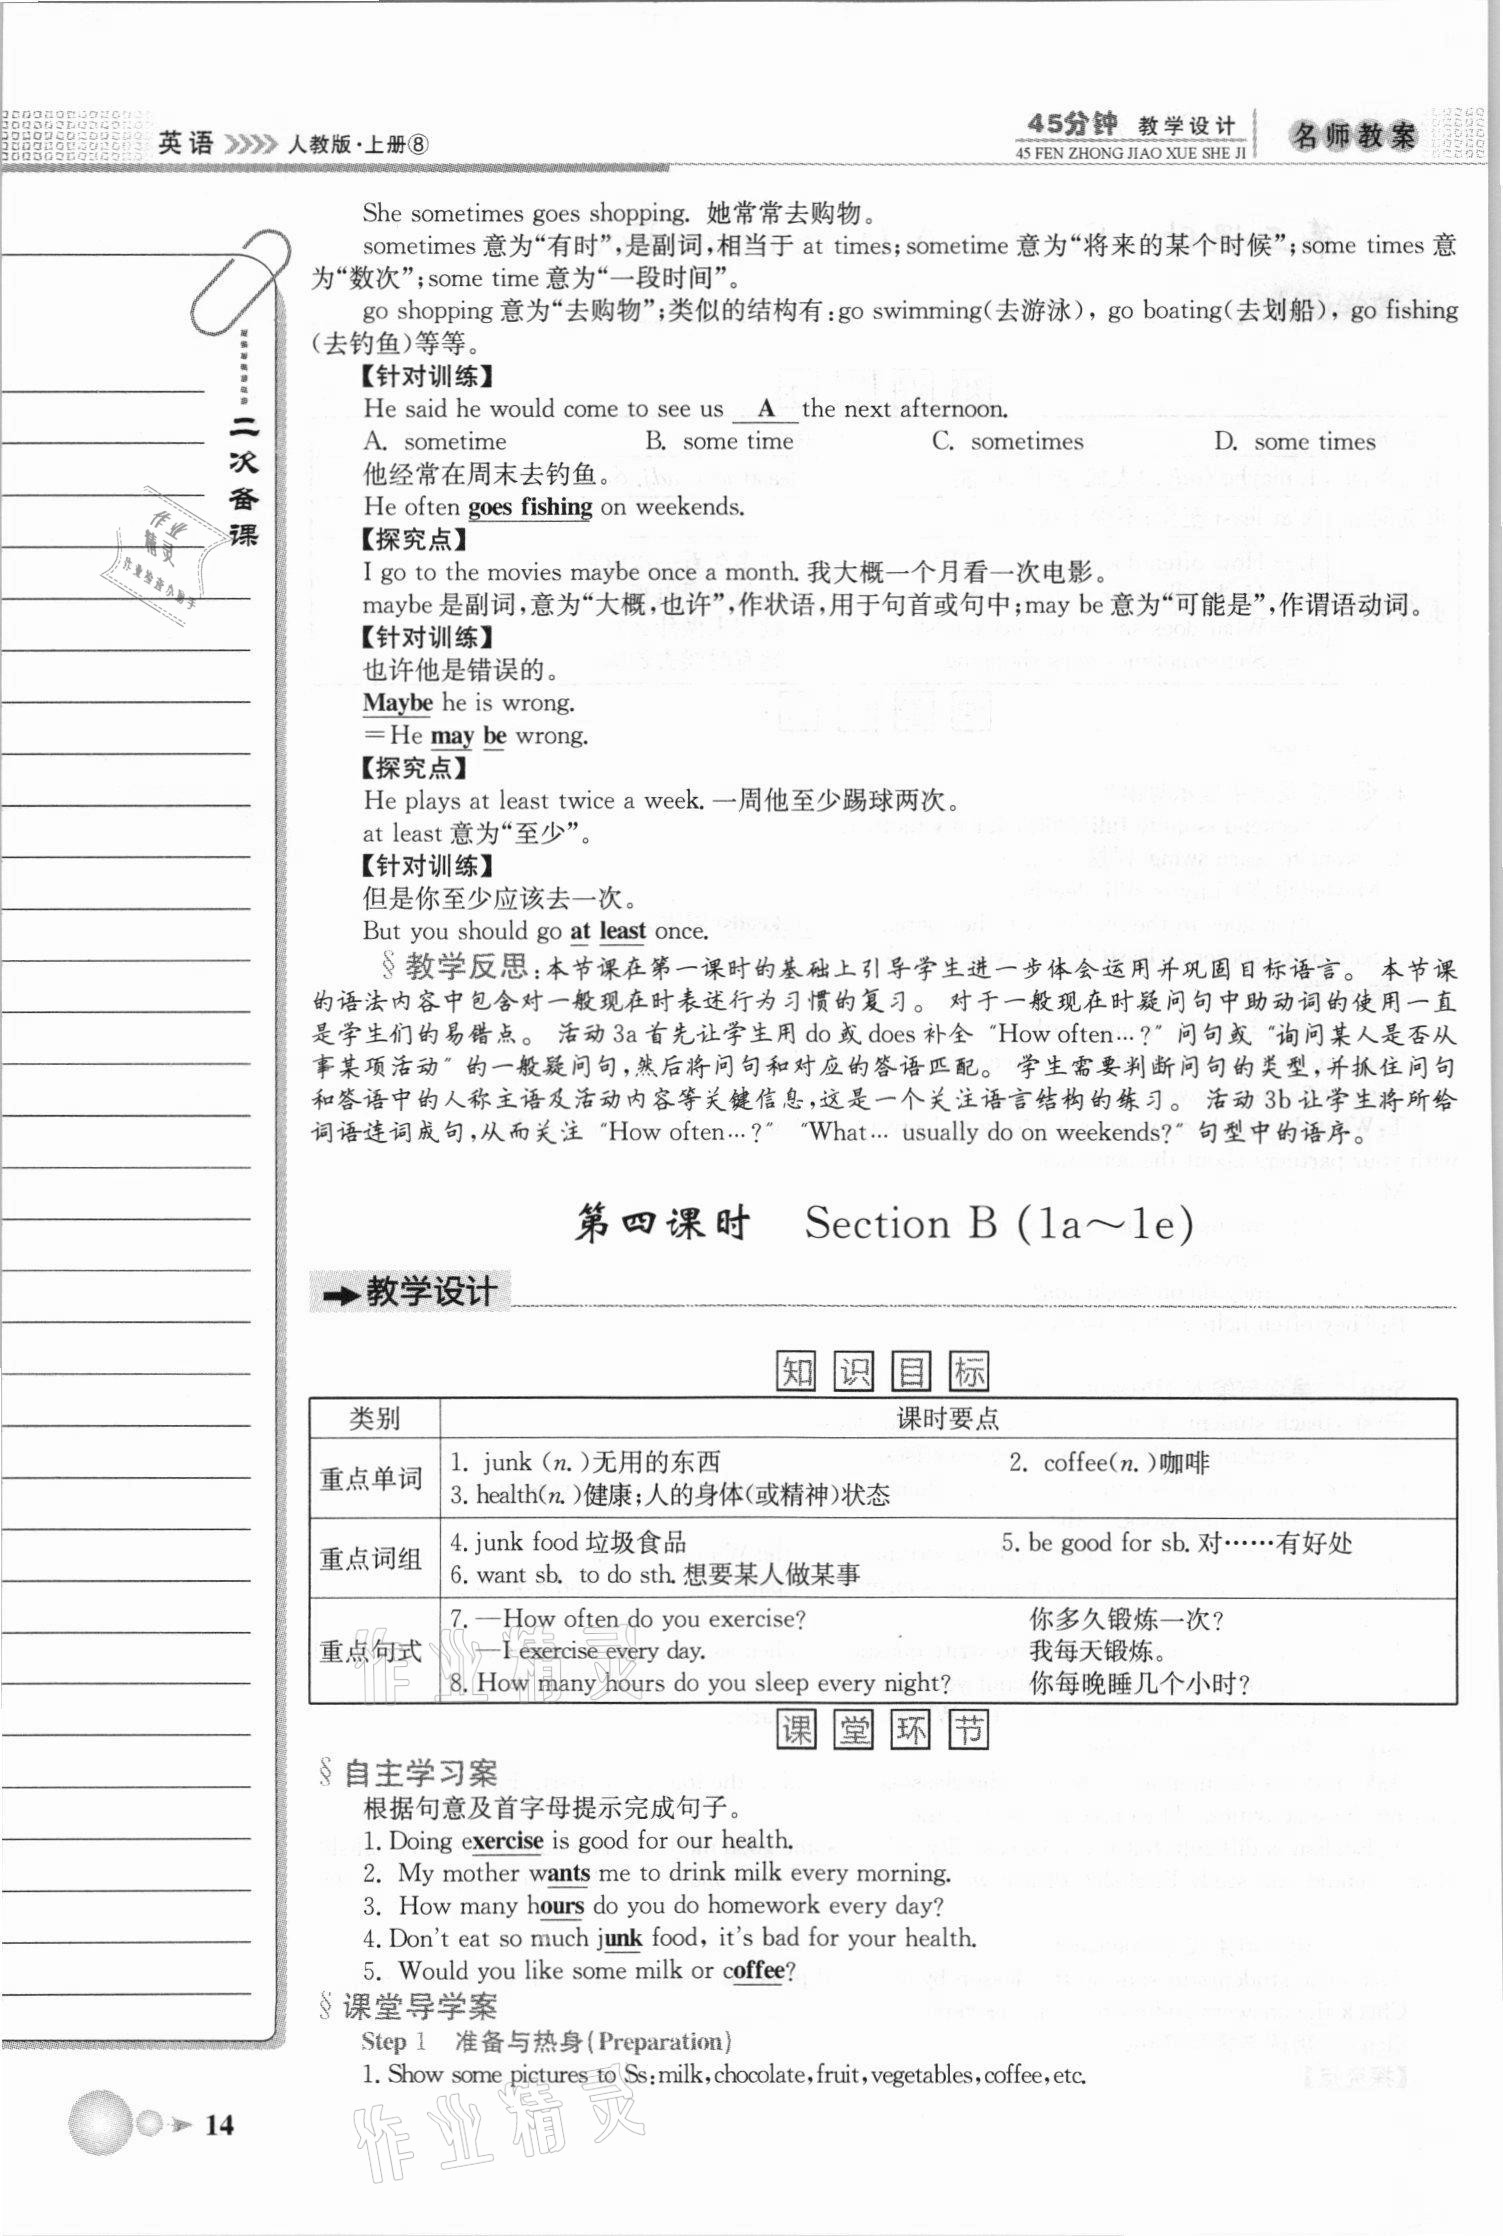 英语 人教版·上册⑧
45分钟 教学设计
45 FEN ZHONG JIAO XUE SHE JI
名师教案
二次备课
She sometimes goes shopping. 她常常去购物。
sometimes 意为“有时”,是副词,相当于 at times;sometime 意为“将来的某个时候”;some times 意
为“数次”;some time 意为“一段时间”。
go shopping 意为“去购物”;类似的结构有:go swimming(去游泳), go boating(去划船), go fishing
(去钓鱼)等等。
【针对训练】
He said he would come to see us A the next afternoon.
A. sometime B. some time C. sometimes D. some times
他经常在周末去钓鱼。
He often goes fishing on weekends.
【探究点】
I go to the movies maybe once a month. 我大概一个月看一次电影。
maybe 是副词,意为“大概,也许”,作状语,用于句首或句中;may be 意为“可能是”,作谓语动词。
【针对训练】
也许他是错误的。
Maybe he is wrong.
=He may be wrong.
【探究点】
He plays at least twice a week. 一周他至少踢球两次。
at least 意为“至少”。
【针对训练】
但是你至少应该去一次。
But you should go at least once.
§ 教学反思:本节课在第一课时的基础上引导学生进一步体会运用并巩固目标语言。 本节课
的语法内容中包含对一般现在时表述行为习惯的复习。 对于一般现在时疑问句中助动词的使用一直
是学生们的易错点。 活动 3a 首先让学生用 do 或 does 补全 “How often…?” 问句或 “询问某人是否从
事某项活动” 的一般疑问句,然后将问句和对应的答语匹配。 学生需要判断问句的类型,并抓住问句
和答语中的人称主语及活动内容等关键信息,这是一个关注语言结构的练习。 活动 3b 让学生将所给
词语连词成句,从而关注 “How often…?” “What… usually do on weekends?” 句型中的语序。
第四课时 Section B (1a～1e)
教学设计
知识目标
类别 课时要点
重点单词 1. junk (n.)无用的东西 2. coffee(n.)咖啡
3. health(n.)健康;人的身体(或精神)状态
重点词组 4. junk food 垃圾食品 5. be good for sb. 对……有好处
6. want sb. to do sth. 想要某人做某事
重点句式 7. —How often do you exercise? 你多久锻炼一次?
—I exercise every day. 我每天锻炼。
8. How many hours do you sleep every night? 你每晚睡几个小时?
课堂环节
§ 自主学习案
根据句意及首字母提示完成句子。
1. Doing exercise is good for our health.
2. My mother wants me to drink milk every morning.
3. How many hours do you do homework every day?
4. Don't eat so much junk food, it's bad for your health.
5. Would you like some milk or coffee?
§ 课堂导学案
Step 1 准备与热身(Preparation)
1. Show some pictures to Ss:milk,chocolate,fruit,vegetables,coffee,etc.
14
作业精灵
作业精灵
作业精灵